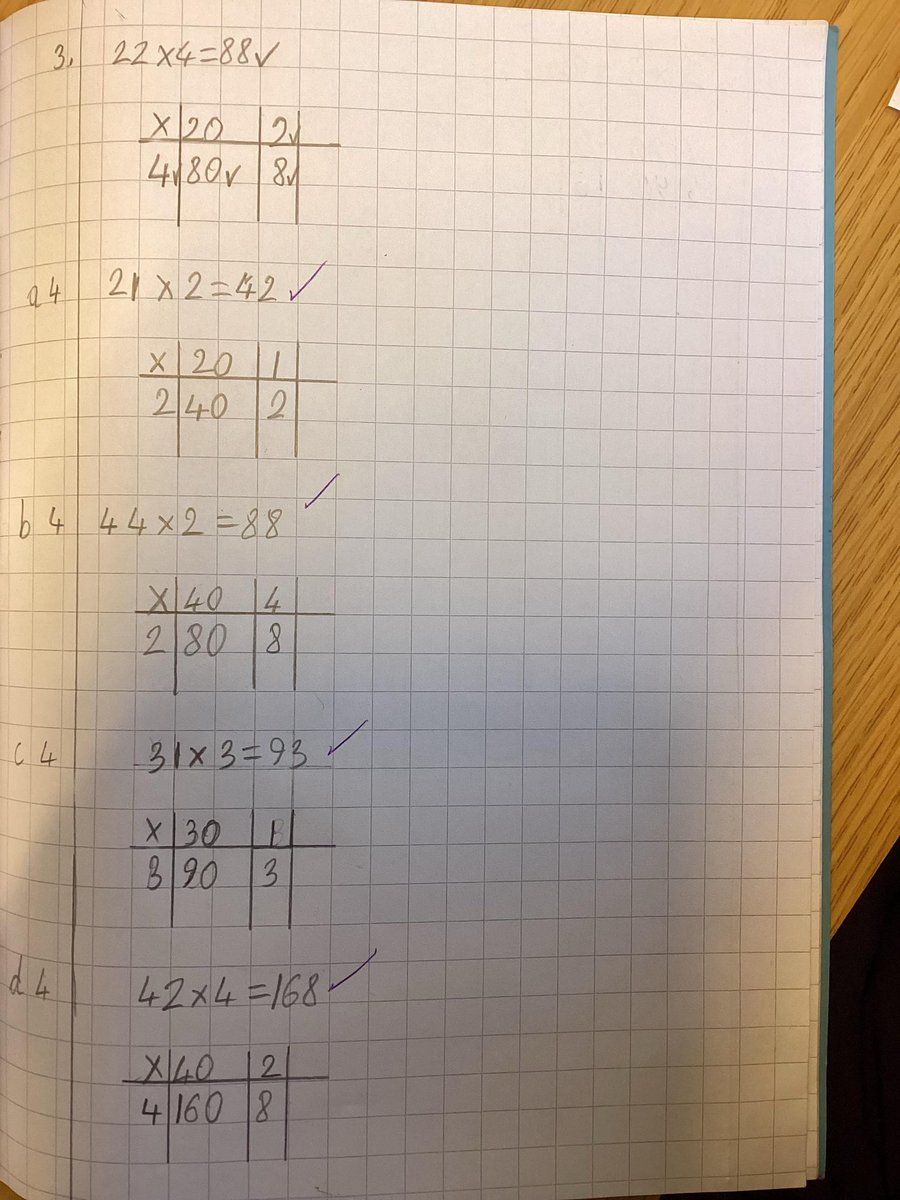 3, 22 x 4 = 88 ✓
x 20 2 ✓
4 ✓ 80 ✓ 8 ✓
a 4 21 x 2 = 42 ✓
x 20 1
2 40 2
b 4 44 x 2 = 88 ✓
x 40 4
2 80 8
c 4 31 x 3 = 93 ✓
x 30 1
3 90 3
d 4 42 x 4 = 168 ✓
x 40 2
4 160 8